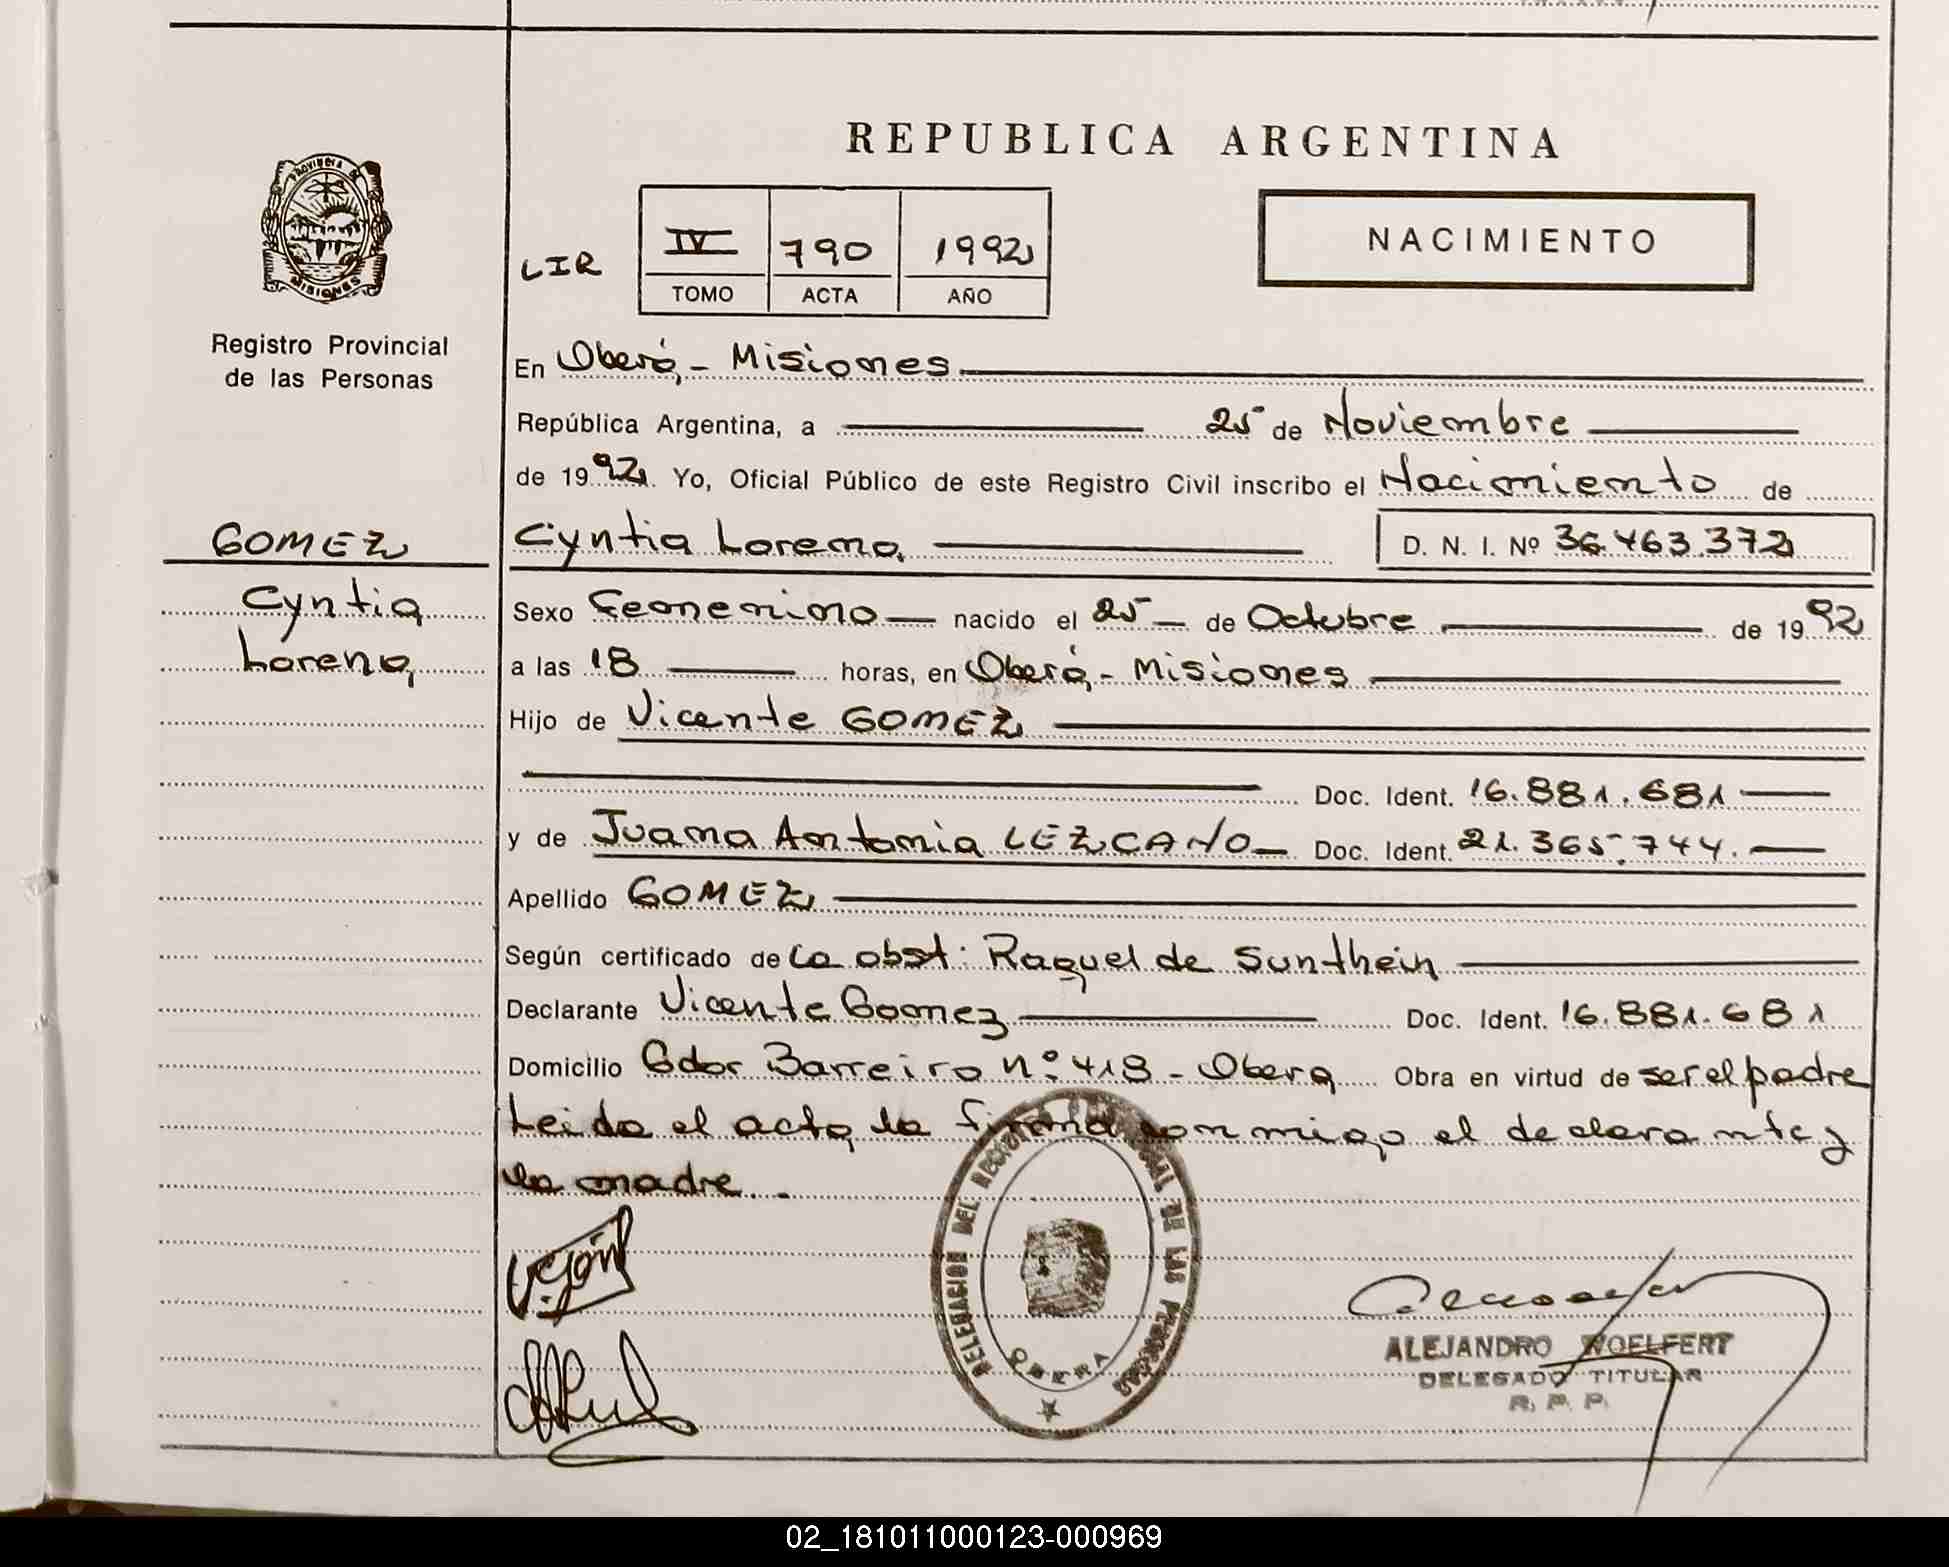 REPUBLICA ARGENTINA
PROVINCIA DE
MISIONES
Registro Provincial
de las Personas
LIR
IV 790 1992
TOMO ACTA AÑO
NACIMIENTO
En Oberá,- Misiones
República Argentina, a 25 de Noviembre
de 1992. Yo, Oficial Público de este Registro Civil inscribo el Nacimiento de
GOMEZ
Cyntia
Lorena
Cyntia Lorena D. N. I. Nº 36.463.372
Sexo Femenino nacido el 25 de Octubre de 1992
a las 18 horas, en Oberá,- Misiones
Hijo de Vicente GOMEZ
Doc. Ident. 16.881.681
y de Juana Antonia LEZCANO Doc. Ident. 21.365.744.
Apellido GOMEZ
Según certificado de la obst: Raquel de Sunthein
Declarante Vicente Gomez Doc. Ident. 16.881.681
Domicilio Gdor Barreiro nº 418 - Obera Obra en virtud de ser el padre
Leida el acta la firma conmigo el declarante y
la madre.
DELEGACION DEL REGISTRO DE LAS PERSONAS
OBERA
ALEJANDRO WOELFERT
DELEGADO TITULAR
R. P. P.
02_181011000123-000969